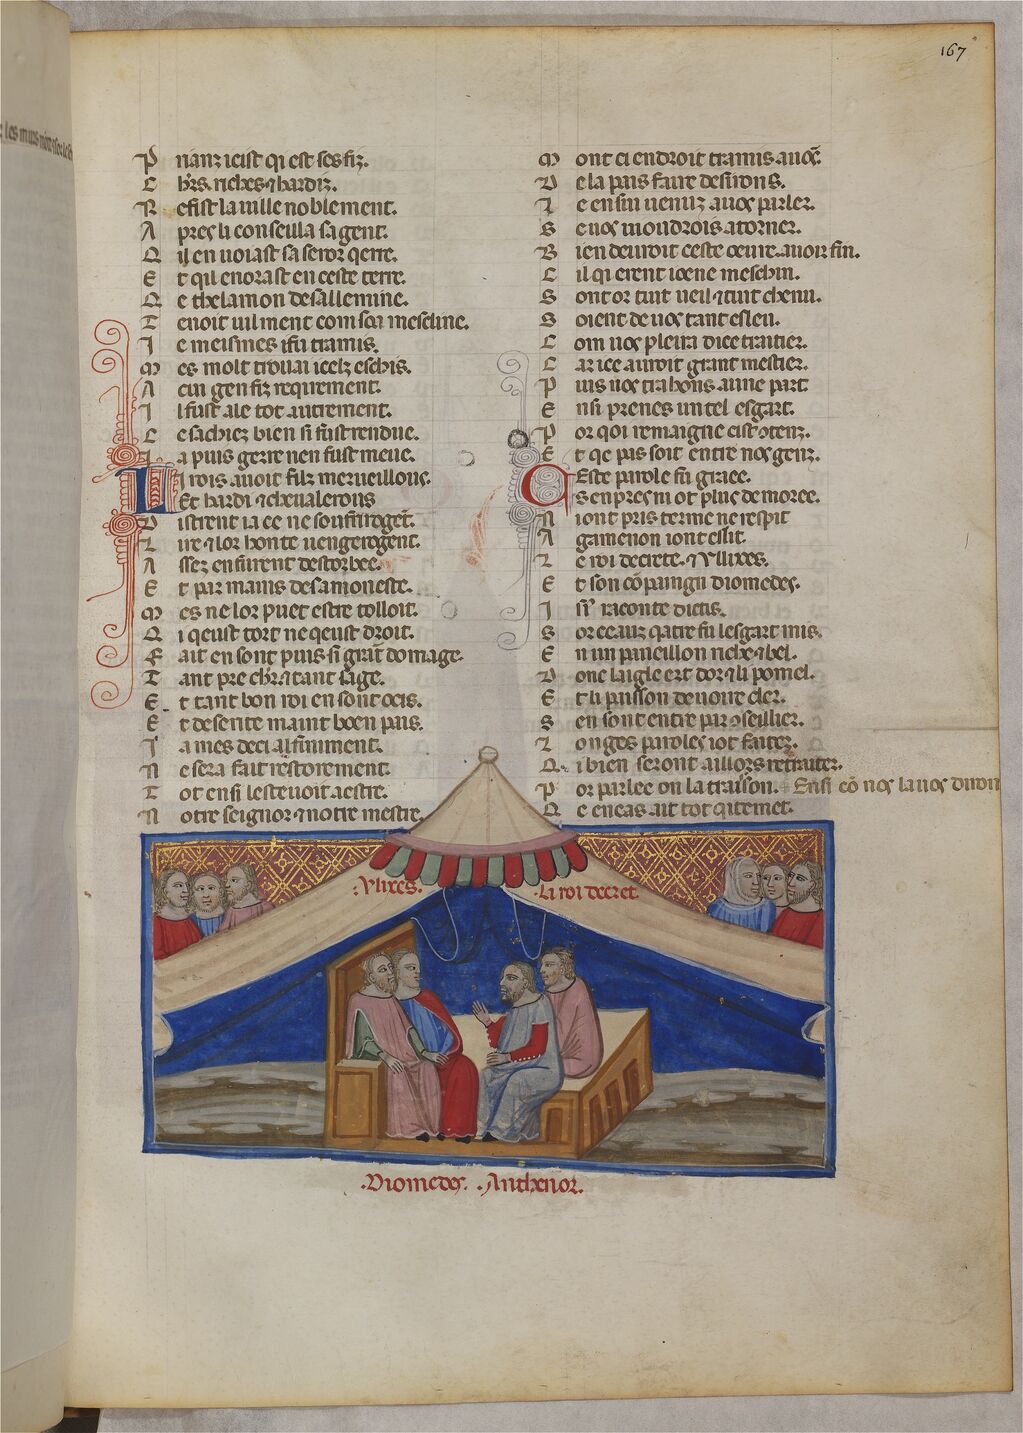 167
P rianz icist qi est ses fiz.
C hrs. riches & hardiz.
R efist la uille noblement.
A pres li conseilla sa gent.
Q il en uoiast sa seror qerre.
E t qil enorast en ceste terre.
Q e thelamon de sallemine.
T enoit uilment com soi meschine.
I e meismes i fu tramis.
M es molt trouai icelz eschis.
A cui gen fiz reqirement.
I l fust ale tot autrement.
C e sachiez bien si fust rendue.
I a puis gerre nen fust meue.
Li rois auoit filz merueillous.
Et hardi & cheualerous
D istrent ia ce ne soufriroget.
L ire & lor honte uengerogent.
A ssez en furent destorbee.
E t par mains de sa moneste.
M es ne lor puet estre tolloit.
Q i qeust tort ne qeust droit.
F ait en sont puis si grãt domage.
T ant pre chr. & tant sage.
E t tant bon roi en sont ocis.
E t deserte maint boen pais.
I a mes deci al finiment.
N e sera fait restorement.
T ot ensi lestenoit aestre.
N otre seignor & notre mestre.
M ont ci endroit tramis a uos.
D e la pais faire desirons.
L e ensui uenuz a uos parler.
S e uos i uoudrois atorner.
B ien deuroit ceste oeure auoir fin.
C il qi erent ioene meschin.
S ont or tuit ueil & tuit chenu.
S oient de uos tant esleu.
C om uos pleira dice traitier.
C ar ice auroit grant mestier.
P uis uos trahons a une part
E nsi prenes un tel esgart.
P or qoi remaigne cist otenz.
E t qe pas soit entre nos genz.
Ceste parole fu graee.
S en pres mot plus demoree.
N i ont pris terme ne respit
A gamenon i ont eslit.
L e roi decrete. & Vlixes.
E t son cõpaingn diomedes.
I si raconte dictis.
S or ceauz qatre fu lesgart mis.
E n un paueillon riche & bel.
D one laigle ert dor & li pomel.
E t li paisson de uoire cler.
S en sont entre par oseillier.
L onges paroles i ot faites.
Q i bien seront aillors retraites.
P or parlee on la traison. Ensi cõ nos la uos diron
Q e eneas ait tot qitemet.
.Vlixes.
.Li roi decret.
.Diomedes. .Anthenor.